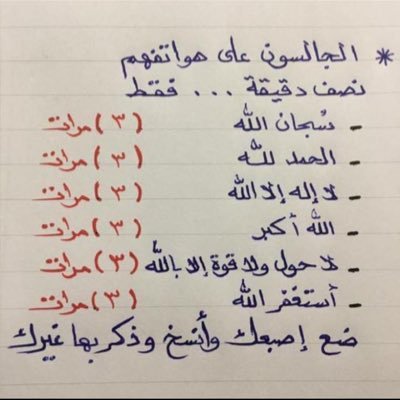 * الجالسون على هواتفهم
نصف دقيقة ... فقط
- سُبحان الله (٣) مرات
- الحمد لله (٣) مرات
- لا إله إلا الله (٣) مرات
- الله أكبر (٣) مرات
- لا حول ولا قوة إلا بالله (٣) مرات
- أستغفر الله (٣) مرات
ضع إصبعك وأنسخ وذكر بها غيرك